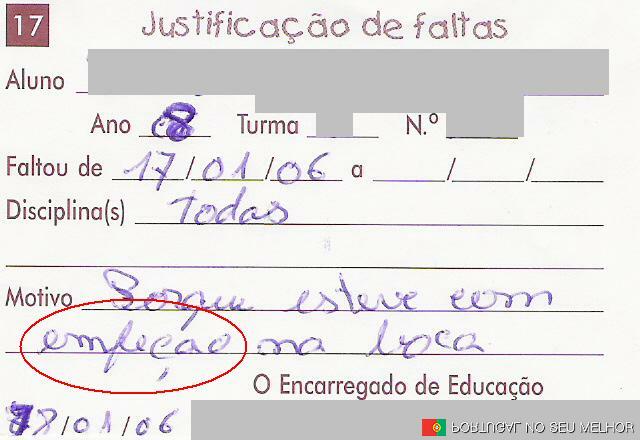 17 Justificação de faltas
Aluno
Ano 8 Turma N.º
Faltou de 17/01/06 a / /
Disciplina(s) Todas
Motivo Porque esteve com
empeção na boca
O Encarregado de Educação
18/01/06
PORTUGAL NO SEU MELHOR